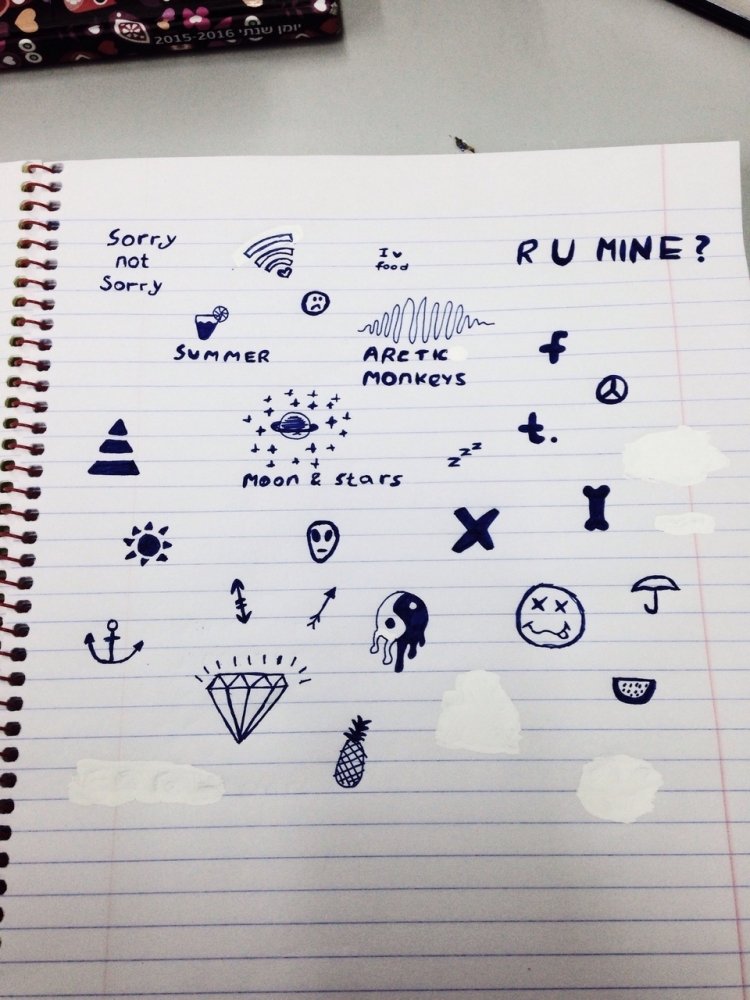 יומן שנתי 2015-2016
Sorry
not
Sorry
I ♥
food
R U MINE?
SUMMER
ARCTIC
MONKEYS
f
t.
zzz
Moon & stars
X